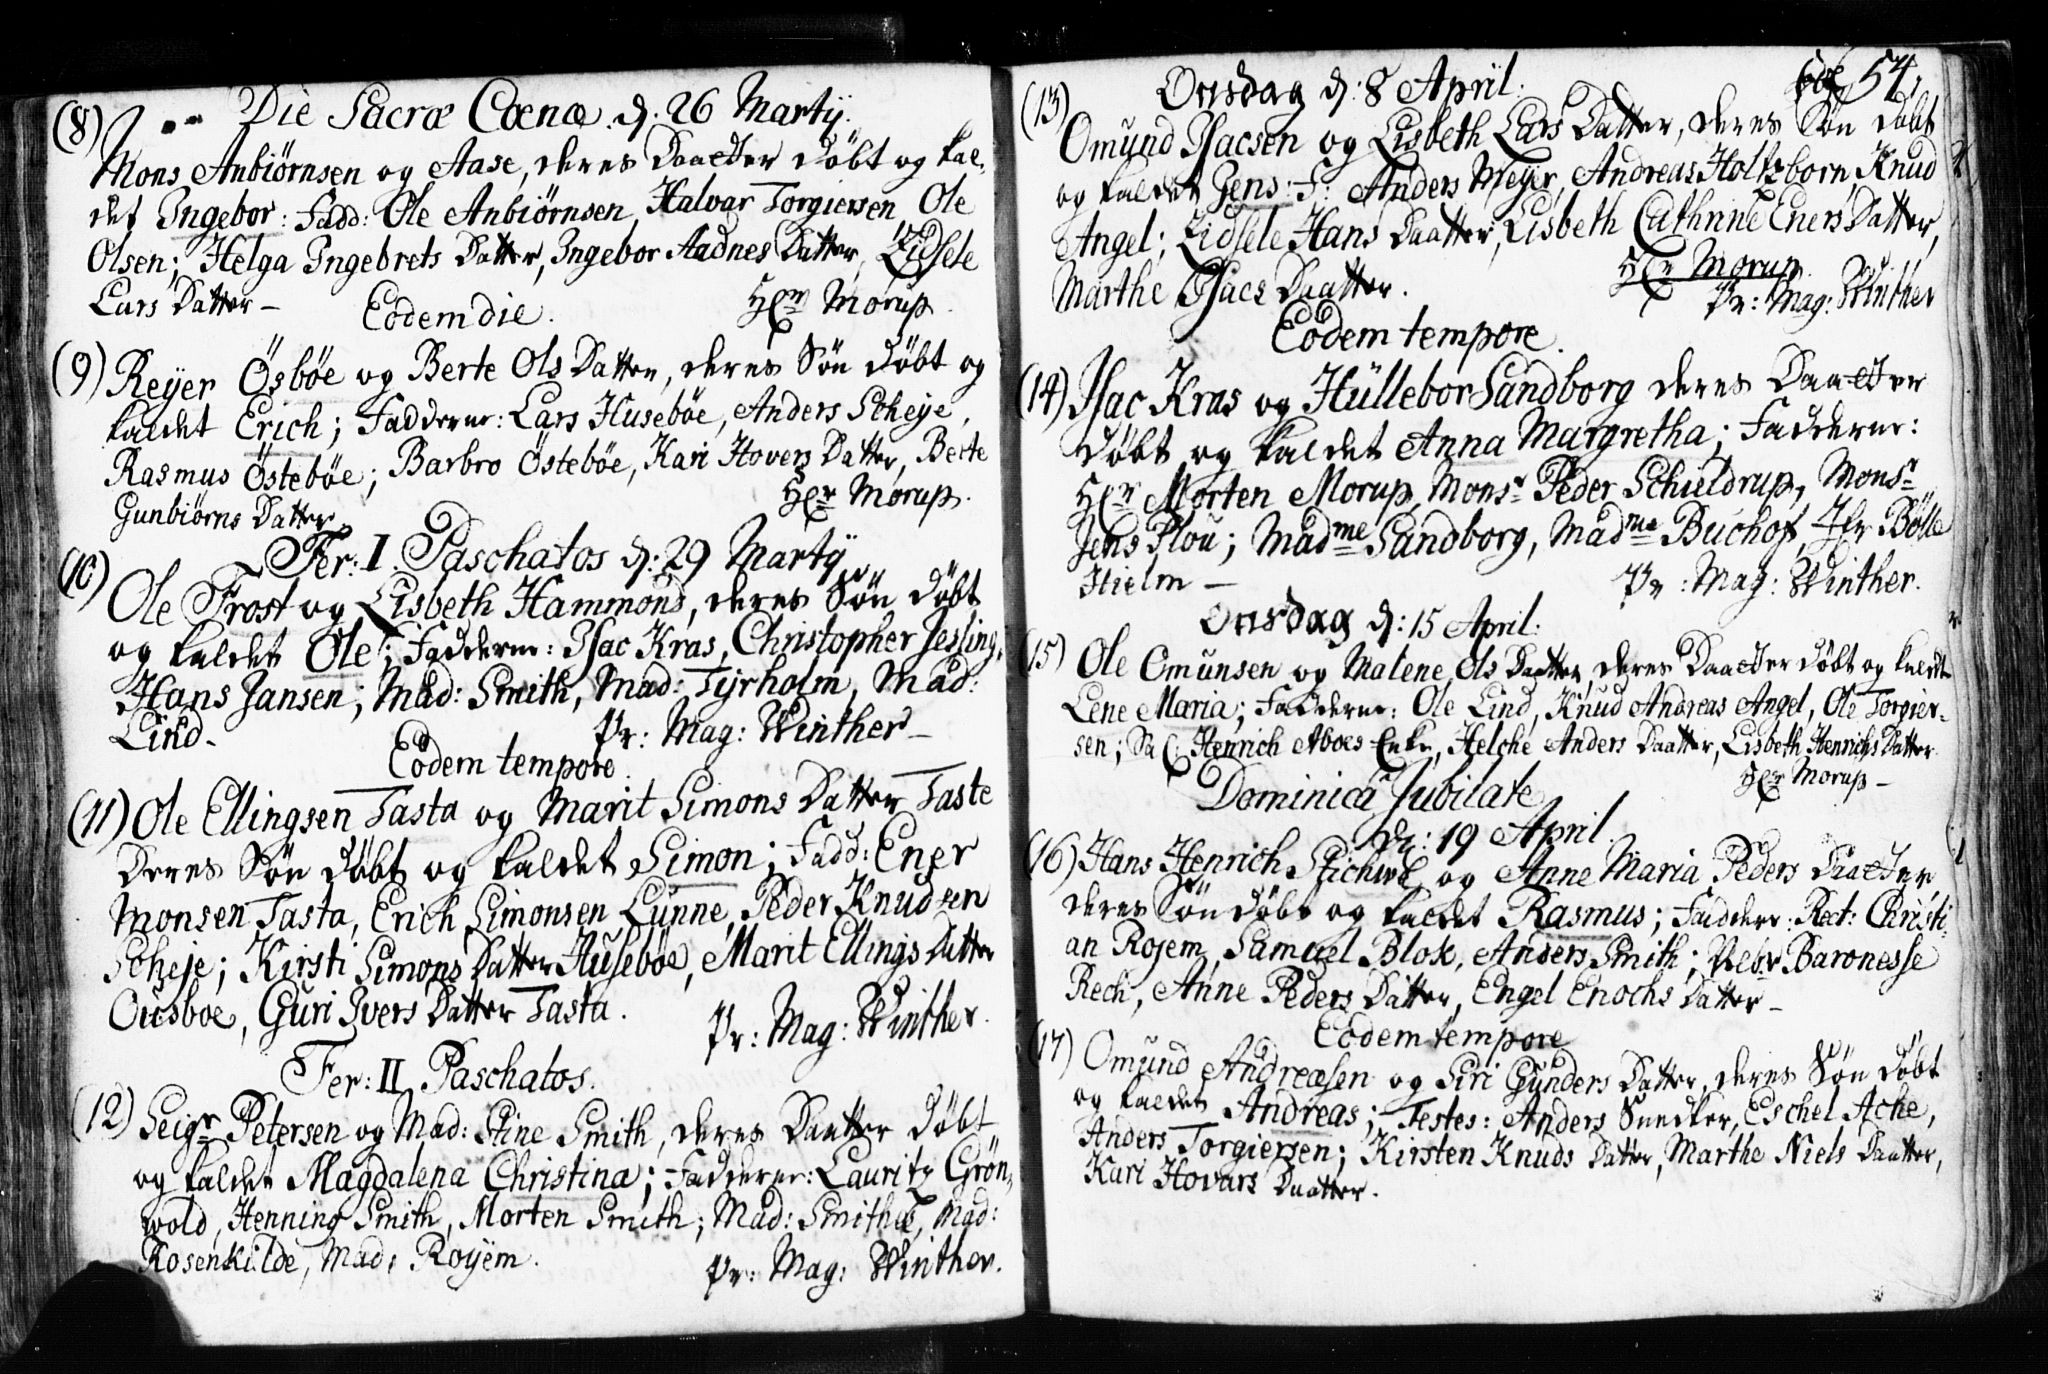 Die Sacræ Cœnæ. d: 26 Martij.
(8)
Mons Anbiørnsen og Aase, deres Daatter døbt og kal-
det Ingebor: Fadd: Ole Anbiørnsen, Halvar Torgiersen, Ole
Olsen; Helga Ingebrets Datter, Ingebor Aadnes Datter, Lidsele
Lars Datter –
Hr Morup.
Eodem die.
(9) Reyer Ösböe og Berte Ols Datter, deres Søn døbt og
kaldet Erich; Fadderne: Lars Huseböe, Anders Scheje,
Rasmus Östeböe; Barbro Östeböe, Kari Hovers Datter, Berte
Gunbiørns Datter.
Hr Morup.
Fer: I Paschatos d: 29 Martij
(10)
Ole Frost og Lisbeth Hammond, deres Søn døbt
og kaldet Ole; Fadderne: Isac Kras, Christopher Jesling,
Hans Jansen; Mad: Smith, Mad: Tyrholm, Mad:
Lind –
Pr: Mag: Winther –
Eodem tempore.
(11) Ole Ellingsen Tasta og Marit Simons Datter Taste
deres Søn døbt og kaldet Simon; Fadd: Ener
Monsen Tasta, Erich Simonsen Lunne, Peder Knudsen
Scheje; Kirsti Simons Datter Huseböe, Marit Ellings Datter
Ousboe, Guri Ivers Datter Tasta.
Pr: Mag: Winther.
Fer: II Paschatos.
(12) Seigr Petersen og Mad: Stine Smith, deres Daatter døbt
og kaldet Magdalena Christina; Fadderne: Lauritz Grön-
wold, Henning Smith, Morten Smith; Mad: Smith, Mad:
Rosenkilde, Mad: Royem.
Pr: Mag: Winther.
54.
(13)
Onsdag d: 8 April.
Omund Isacsen og Lisbeth Lars Datter, deres Søn døbt
og kaldet Jens: F: Anders Meyer, Andreas Holtzborn, Knud
Angel; Lidsele Hans Daatter, Lisbeth Cathrine Eners Datter,
Marthe Isacs Daatter.
Hr Morup.
Pr: Mag: Winther
Eodem tempore.
(14) Isac Kras og Hüllebor Sandborg deres Daatter
døbt og kaldet Anna Margretha; Fadderne:
Hr Morten Morup, Monsr Peder Schieldrup, Monsr
Jens Plou; Madme Sandborg, Madme Buchof, Jfr Bölle
Hielm –
Pr: Mag: Winther.
Onsdag d: 15 April.
(15) Ole Omunsen og Malene Ols Daatter, deres Daatter døbt og kaldt
Lene Maria; Fadderne: Ole Lind, Knud Andreas Angel, Ole Torgier-
sen; Sal: Henrich Aboes Enke, Helche Anders Daatter, Lisbeth Henrichs Datter
Hr Morup –
Dominica Jubilate
d: 19 April.
(16) Hans Henrich og Anne Maria Peders Daatter
deres Søn døbt og kaldet Rasmus; Faddere: Rect: Christi-
an Rojem, Samuel Blok, Anders Smith; Baronesse
Rech, Anne Peders Datter, Engel Enochs Datter –
Eodem tempore
(17) Omund Andreæsen og Siri Gunders Datter, deres Søn døbt
og kaldet Andreas; Testes: Anders Snedker, Eschel Ache,
Anders Torgiersen; Kirsten Knuds Datter, Marthe Niels Daatter,
Kari Hovars Daatter.